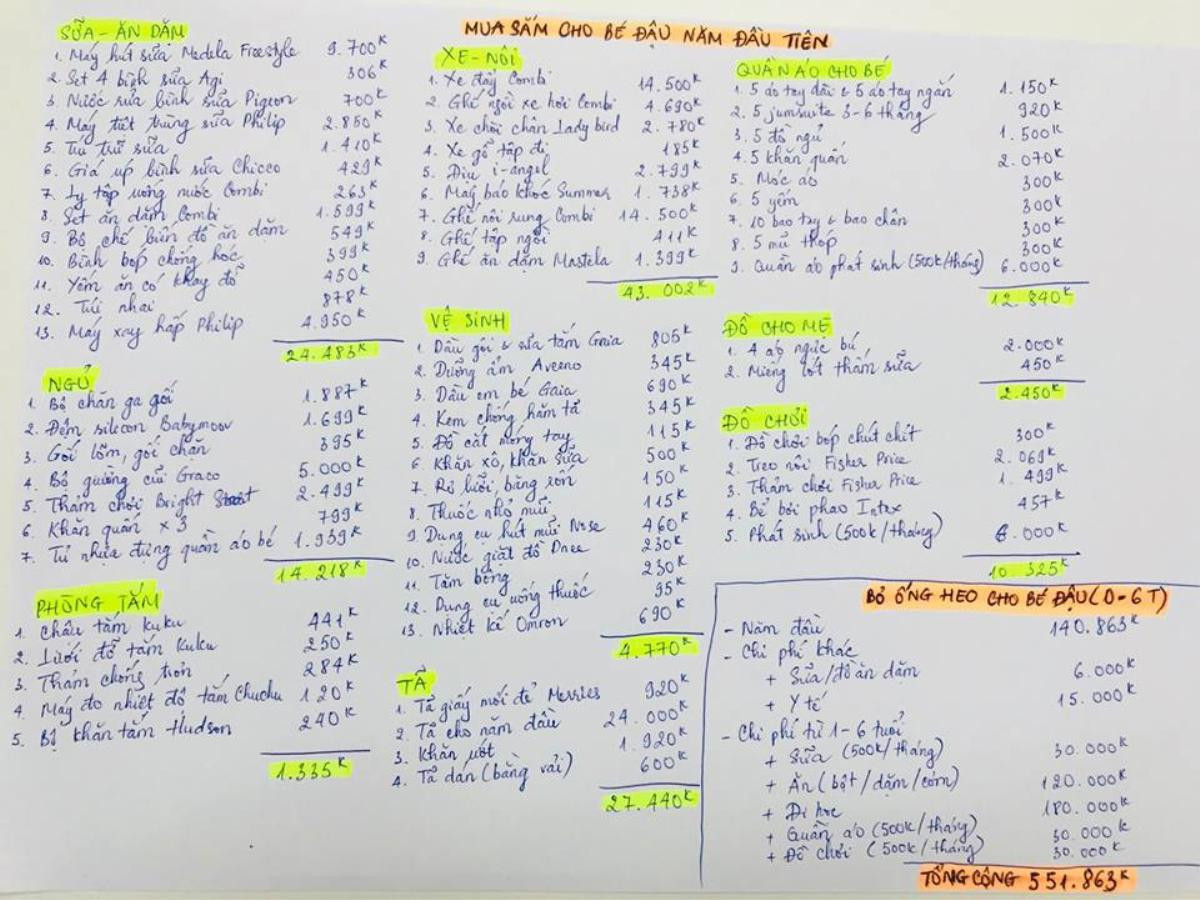 MUA SẮM CHO BÉ ĐẬU NĂM ĐẦU TIÊN
SỮA - ĂN DẶM
1. Máy hút sữa Medela Freestyle 9.700K
2. Set 4 bình sữa Agi 306K
3. Nước rửa bình sữa Pigeon 700K
4. Máy tiệt trùng sữa Philip 2.850K
5. Túi trữ sữa 1.410K
6. Giá úp bình sữa Chicco 429K
7. Ly tập uống nước Combi 263K
8. Set ăn dặm Combi 1.599K
9. Bộ chế biến đồ ăn dặm 549K
10. Bình bóp chống hóc 399K
11. Yếm ăn có khay đổ 450K
12. Túi nhai 878K
13. Máy xay hấp Philip 4.950K
24.483K
NGỦ
1. Bộ chăn ga gối 1.887K
2. Đệm silicon Babymoov 1.699K
3. Gối lõm, gối chặn 395K
4. Bộ giường cũi Graco 5.000K
5. Thảm chơi Bright 2.499K
6. Khăn quấn x 3 799K
7. Tủ nhựa đựng quần áo bé 1.939K
14.218K
PHÒNG TẮM
1. Chậu tắm Kuku 441K
2. Lưới đỡ tắm Kuku 250K
3. Thảm chống trơn 284K
4. Máy đo nhiệt độ tắm Chuchu 120K
5. Bộ khăn tắm Hudson 240K
1.335K
XE - NÔI
1. Xe đẩy Combi 14.500K
2. Ghế ngồi xe hơi Combi 4.690K
3. Xe chòi chân Lady bird 2.780K
4. Xe gỗ tập đi 185K
5. Địu i-angel 2.799K
6. Máy báo khóc Summer 1.738K
7. Ghế nôi rung Combi 14.500K
8. Ghế tập ngồi 411K
9. Ghế ăn dặm Mastela 1.399K
43.002K
VỆ SINH
1. Dầu gội & sữa tắm Gaia 805K
2. Dưỡng ẩm Aveeno 345K
3. Dầu em bé Gaia 690K
4. Kem chống hăm tã 345K
5. Đồ cắt móng tay 115K
6. Khăn xô, khăn sữa 500K
7. Rơ lưỡi, băng rốn 150K
8. Thuốc nhỏ mũi 115K
9. Dụng cụ hút mũi Nose 460K
10. Nước giặt đồ Dnee 230K
11. Tăm bông 230K
12. Dụng cụ uống thuốc 95K
13. Nhiệt kế Omron 690K
4.770K
TÃ
1. Tã giấy mới đẻ Merries 920K
2. Tã cho năm đầu 24.000K
3. Khăn ướt 1.920K
4. Tã dán (bằng vải) 600K
27.440K
QUẦN ÁO CHO BÉ
1. 5 áo tay dài & 5 áo tay ngắn 1.150K
2. 5 jumsuite 3-6 tháng 920K
3. 5 đồ ngủ 1.500K
4. 5 khăn quấn 2.070K
5. Móc áo 300K
6. 5 yếm 300K
7. 10 bao tay & bao chân 300K
8. 5 mũ thóp 300K
9. Quần áo phát sinh (500k/tháng) 6.000K
12.840K
ĐỒ CHO MẸ
1. 4 áo ngực bú 2.000K
2. Miếng lót thấm sữa 450K
2.450K
ĐỒ CHƠI
1. Đồ chơi bóp chút chít 300K
2. Treo nôi Fisher Price 2.069K
3. Thảm chơi Fisher Price 1.499K
4. Bể bơi phao Intex 457K
5. Phát sinh (500k/tháng) 6.000K
10.325K
BỎ ỐNG HEO CHO BÉ ĐẬU (0-6T)
- Năm đầu 140.863K
- Chi phí khác
+ Sữa/đồ ăn dặm 6.000K
+ Y tế 15.000K
- Chi phí từ 1-6 tuổi
+ Sữa (500k/tháng) 30.000K
+ Ăn (bột/dặm/cơm) 120.000K
+ Đi học 180.000K
+ Quần áo (500k/tháng) 30.000K
+ Đồ chơi (500k/tháng) 30.000K
TỔNG CỘNG 551.863K